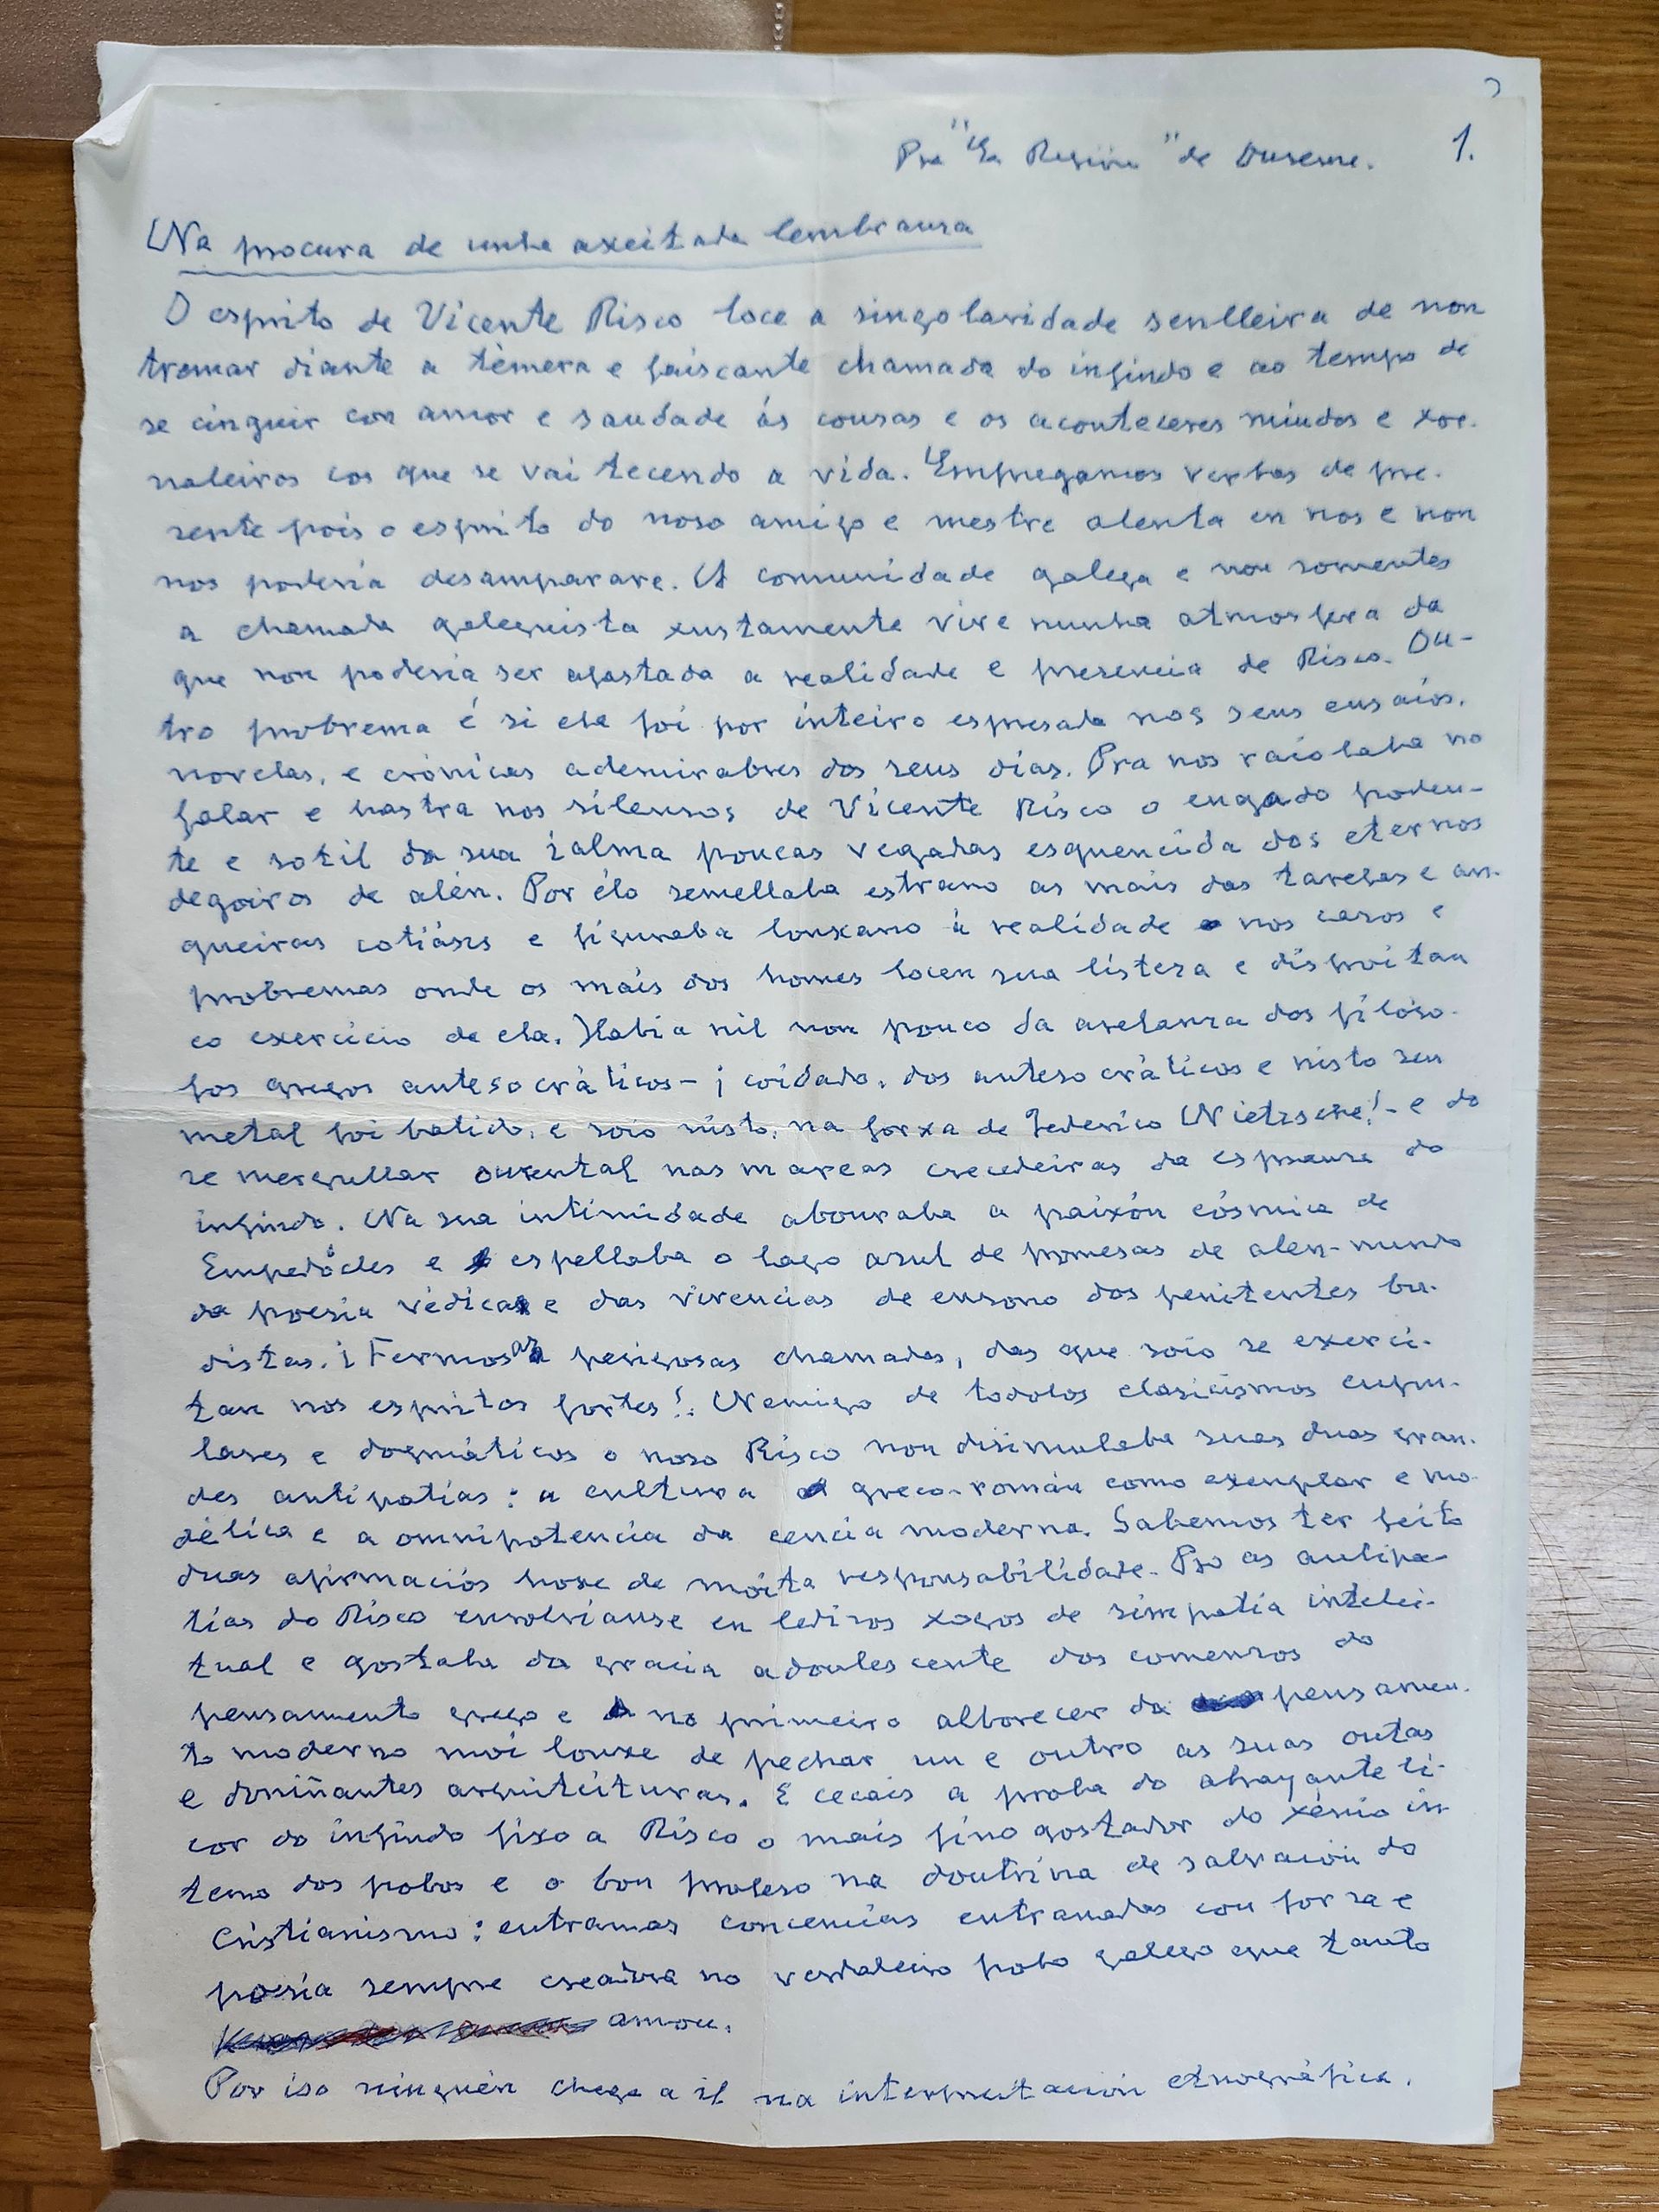 Pra "La Región" de Ourense. 1.
Na procura de unha axeitada lembranza
O esprito de Vicente Risco loce a singolaridade senlleira de non
tremar diante a témera e faiscante chamada do infindo e ao tempo de
se cinguir con amor e saudade ás cousas e os aconteceres miudos e xor-
naleiros cos que se vai tecendo a vida. Empregamos verbas de pre-
sente pois o esprito do noso amigo e mestre alenta en nos e non
nos podería desamparare. A comunidade galega e non somentes
a chamada galeguista xustamente vive nunha atmosfera da
que non podería ser afastada a realidade e presencia de Risco. Ou-
tro probrema é si ela foi por inteiro espresada nos seus ensaios,
novelas, e crónicas ademirabres dos seus días. Pra nos raiolaba no
falar e hastra nos silenzos de Vicente Risco o engado poden-
te e sotil da sua ialma poucas vegadas esquencida dos eternos
degoiros de alén. Por élo semellaba estrano as mais das tarefas e an-
gueiras cotiáns e figuraba louxano á realidade nos casos e
probremas onde os mais dos homes locen sua listeza e disfroitan
co exercicio de ela. Había nil non pouco da arelanza dos filóso-
fos gregos antesocráticos - ¡coidado, dos antesocráticos e nisto seu
metal foi batido, e soio nisto, na forxa de Federico Nietzsche! - e do
se mergullar oriental nas mareas crecedeiras da espranza do
infindo. Na sua intimidade abouraba a paixón cósmica de
Empedócles e espellaba o lago azul de promesas de alen-mundo
da poesía védica e das vivencias de ensono dos penitentes bu-
distas. ¡Fermosas perigosas chamadas, das que soio se exerci-
tan nos espritos fortes!. Nemigo de todolos clasicismos
e dogmáticos o noso Risco non disimulaba suas duas gran-
des antipatías: a cultura greco-román como exemplar e mo-
délica e a omnipotencia da cencia moderna. Sabemos ter feito
duas afirmaciós hoxe de moita responsabilidade. Pro as antipa-
tías do Risco envolvíanse en ledizos xogos de simpatía intelei-
tual e gostaba da gracia adoulescente dos comenzos do
pensamento grego e no primeiro alborecer da pensamen-
to moderno moi louxe de pechar un e outro as suas outas
e domiñantes arquiteituras. E cecais a proba do abafante li-
cor do infindo fixo a Risco o mais fino gostador do xénio in-
terno dos pobos e o bon profeso na doutrina de salvación do
Cristianismo: entramas concencias entranadas con forza e
poesía sempre creadora no verdadeiro pobo galego que tanto
amou.
Por iso ninguén chega a il na interpretación etnográfica.